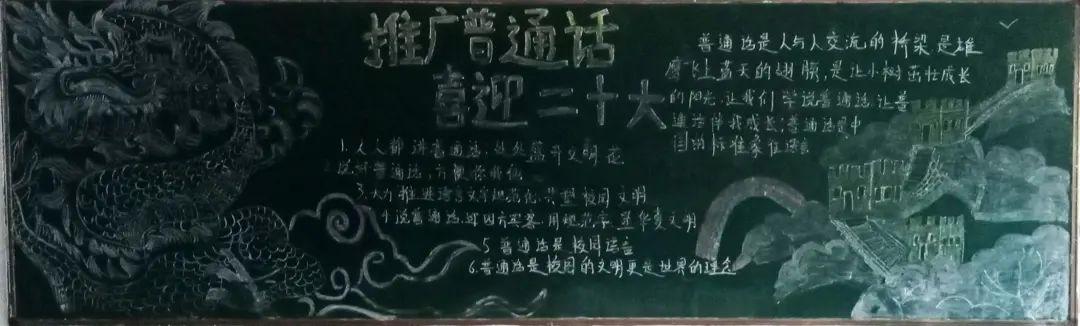 推广普通话
喜迎二十大
1.人人都讲普通话，处处盛开文明花
2.说好普通话，方便你我他
3.大力推进语言文字规范化，共塑校园文明
4.说普通话，迎四方宾客，用规范字，显华夏文明
5 普通话是校园语言
6.普通话是校园的文明更是世界的理念
普通话是人与人交流的桥梁是雄
鹰飞上蓝天的翅膀，是让小树茁壮成长
的阳光，让我们学说普通话，让普
通话伴我成长；普通话是中
国的标准家住语言